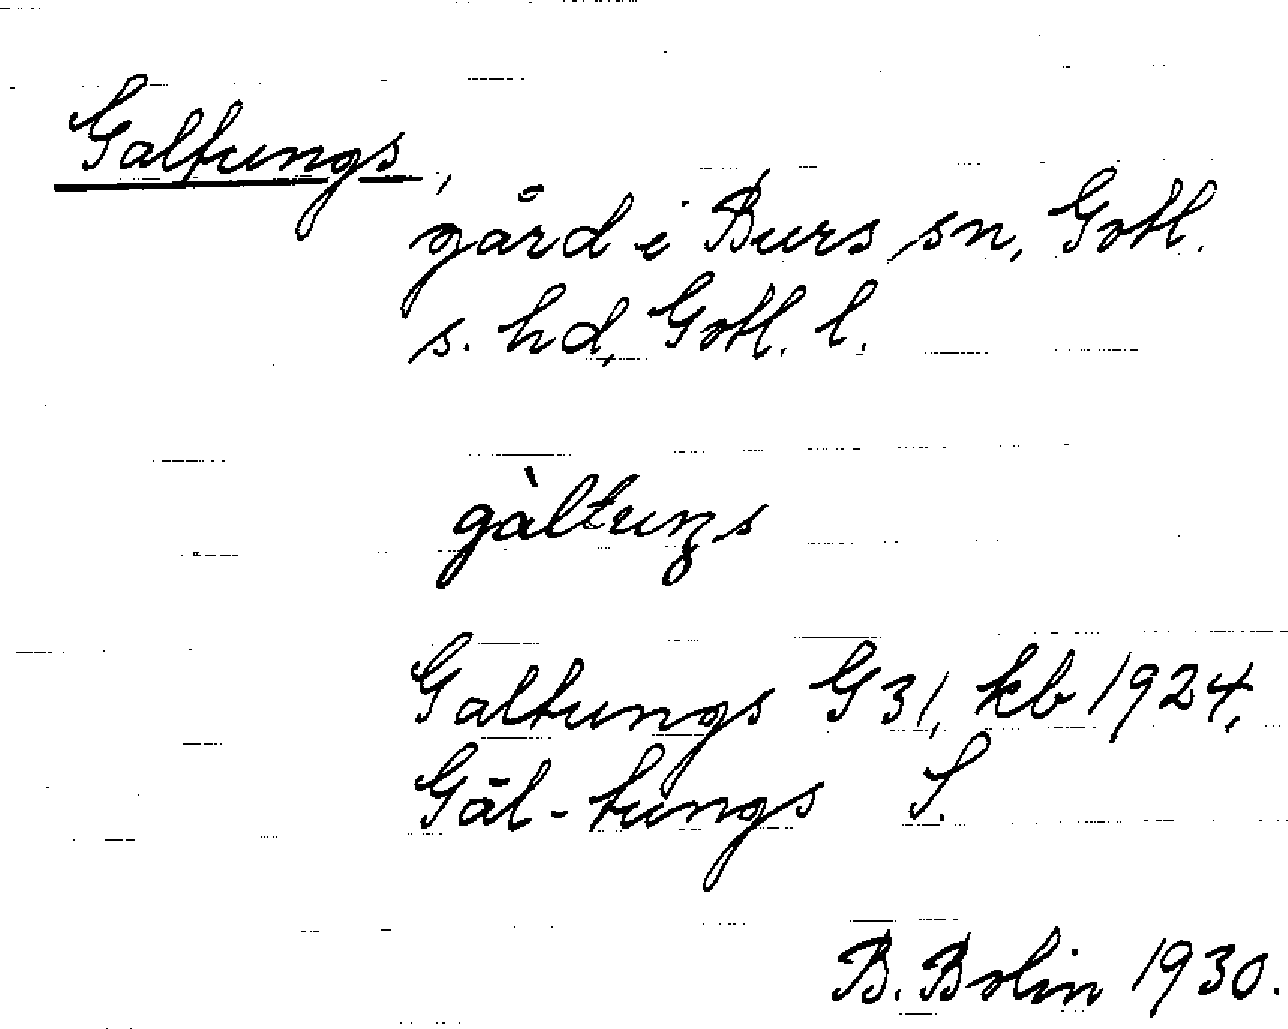 Galtungs,
gård i Burs sn, Gotl.
s. hd, Gotl. l.
gàltuŋs
Galtungs G 31, kb 1924,
Gāl-tungs S.
B. Bolin 1930.